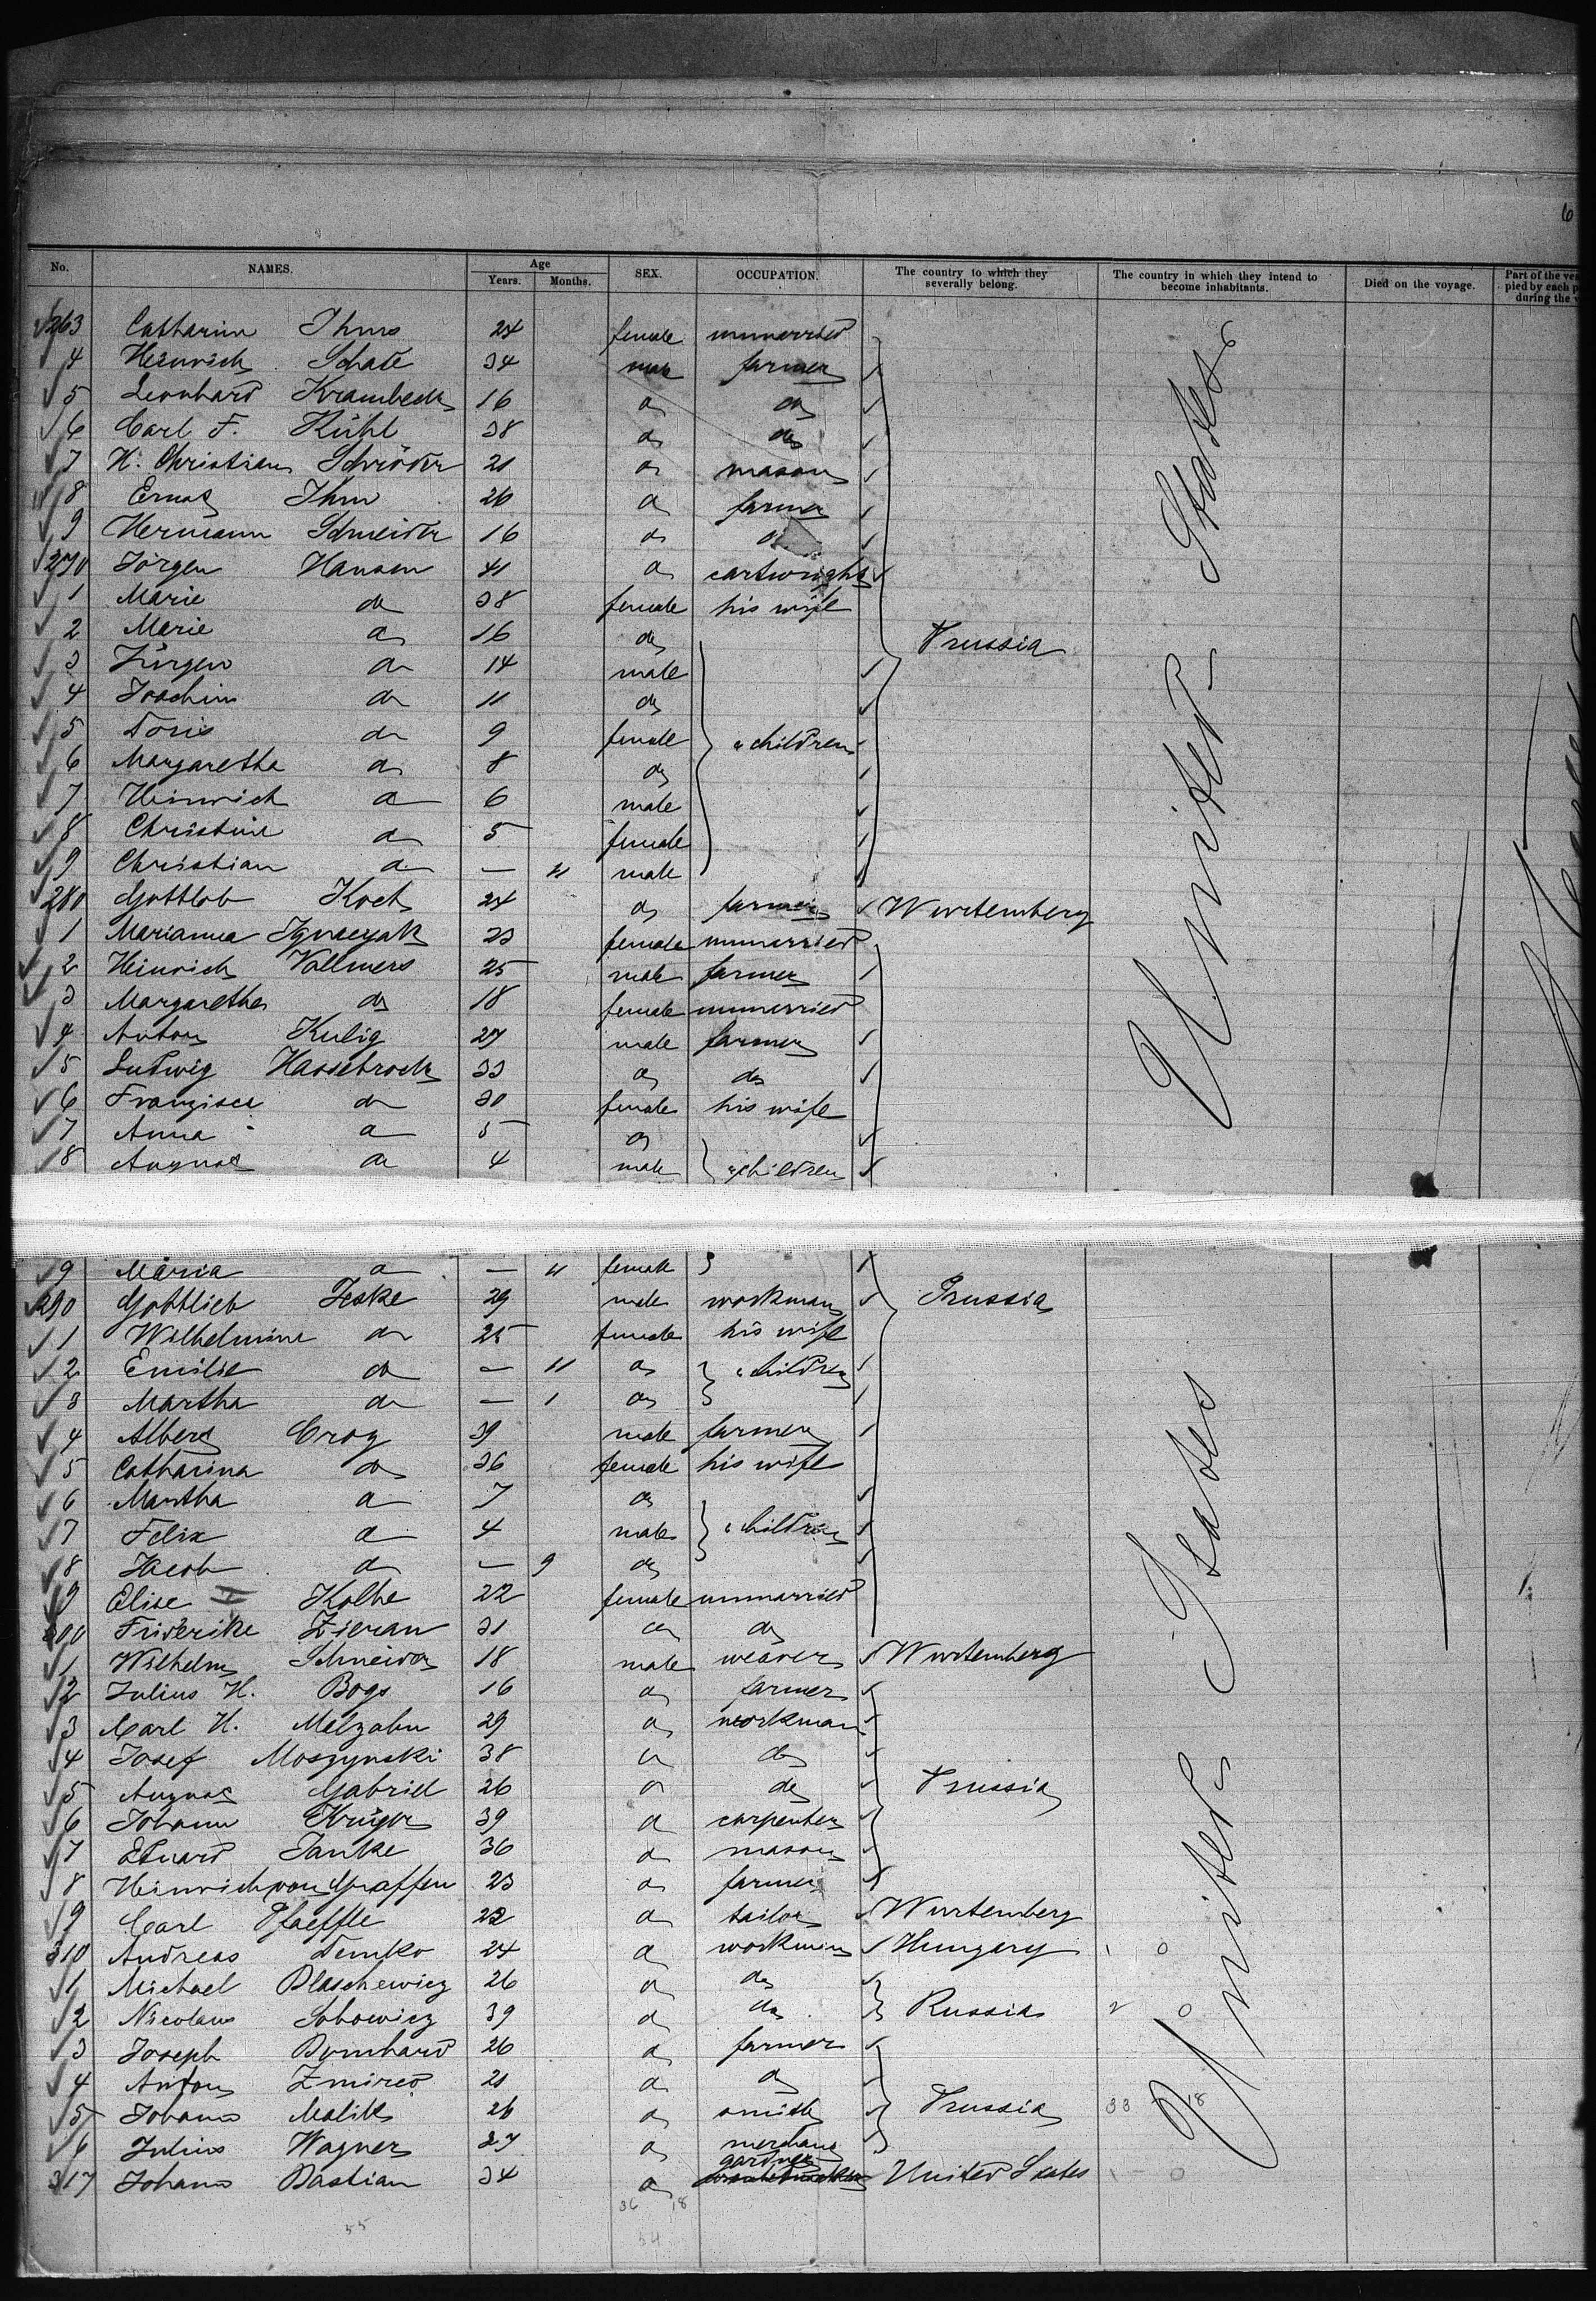 6
No. NAMES. Age Years. Months. SEX. OCCUPATION. The country to which they severally belong. The country in which they intend to become inhabitants. Died on the voyage. Part of the ves pied by each p during the v
263 Catharina Thms 24 female unmarried
4 Heinrich Schate 34 male farmer
5 Leonhard Krambeck 16 do do
6 Carl F. Kühl 38 do do
7 H. Christian Schröder 21 do mason
8 Ernst Ihm 26 do farmer
9 Hermann Schneider 16 do do
270 Jörgen Hansen 41 do cartwright
1 Marie do 38 female his wife
2 Marie do 16 do Prussia
3 Jürgen do 14 male
4 Joachim do 11 do
5 Doris do 9 female " children
6 Margaretha do 8 do
7 Heinrich do 6 male
8 Christine do 5 female
9 Christian do — 11 male
280 Gottlob Koch 24 do farmer Wurtemberg
1 Marianna Ignaczak 23 female unmarried
2 Heinrich Vollmers 25 male farmer
3 Margaretha do 18 female unmarried
4 Anton Kulig 27 male farmer
5 Ludwig Hassebrock 33 do do
6 Franzisca do 30 female his wife
7 Anna do 5 do
8 August do 4 male " children
United States
9 Maria do — 11 female
290 Gottlieb Jeske 29 male workman Prussia
1 Wilhelmine do 25 female his wife
2 Emilie do — 11 do " children
3 Martha do — 1 do
4 Albert Croy 39 male farmer
5 Catharina do 36 female his wife
6 Martha do 7 do
7 Felix do 4 male " children
8 Jacob do — 9 do
9 Elise Kolbe 22 female unmarried
300 Friederike Zieran 31 do do
1 Wilhelm Schneider 18 male weaver Wurtemberg
2 Julius H. Bogs 16 do farmer
3 Carl H. Malzahn 29 do workman
4 Josef Moszynski 38 do do
5 August Gabriel 26 do do Prussia
6 Johann Krüger 39 do carpenter
7 Eduard Janke 36 do mason
8 Heinrich von Graffen 23 do farmer
9 Carl Pfaeffle 22 do tailor Wurtemberg
310 Andreas Demko 24 do workman Hungary 1 0
1 Michael Blaschewicz 26 do do
2 Nicolaus Sobowicz 39 do do Russia 2 0
3 Joseph Bernhard 26 do farmer
4 Anton Zmired 21 do do
5 Johann Malik 26 do smith Prussia 33 18
6 Julius Wagner 27 do merchant
gardner
317 Johann Bastian 34 do United States 1 — 0
United States
36 18
55 54